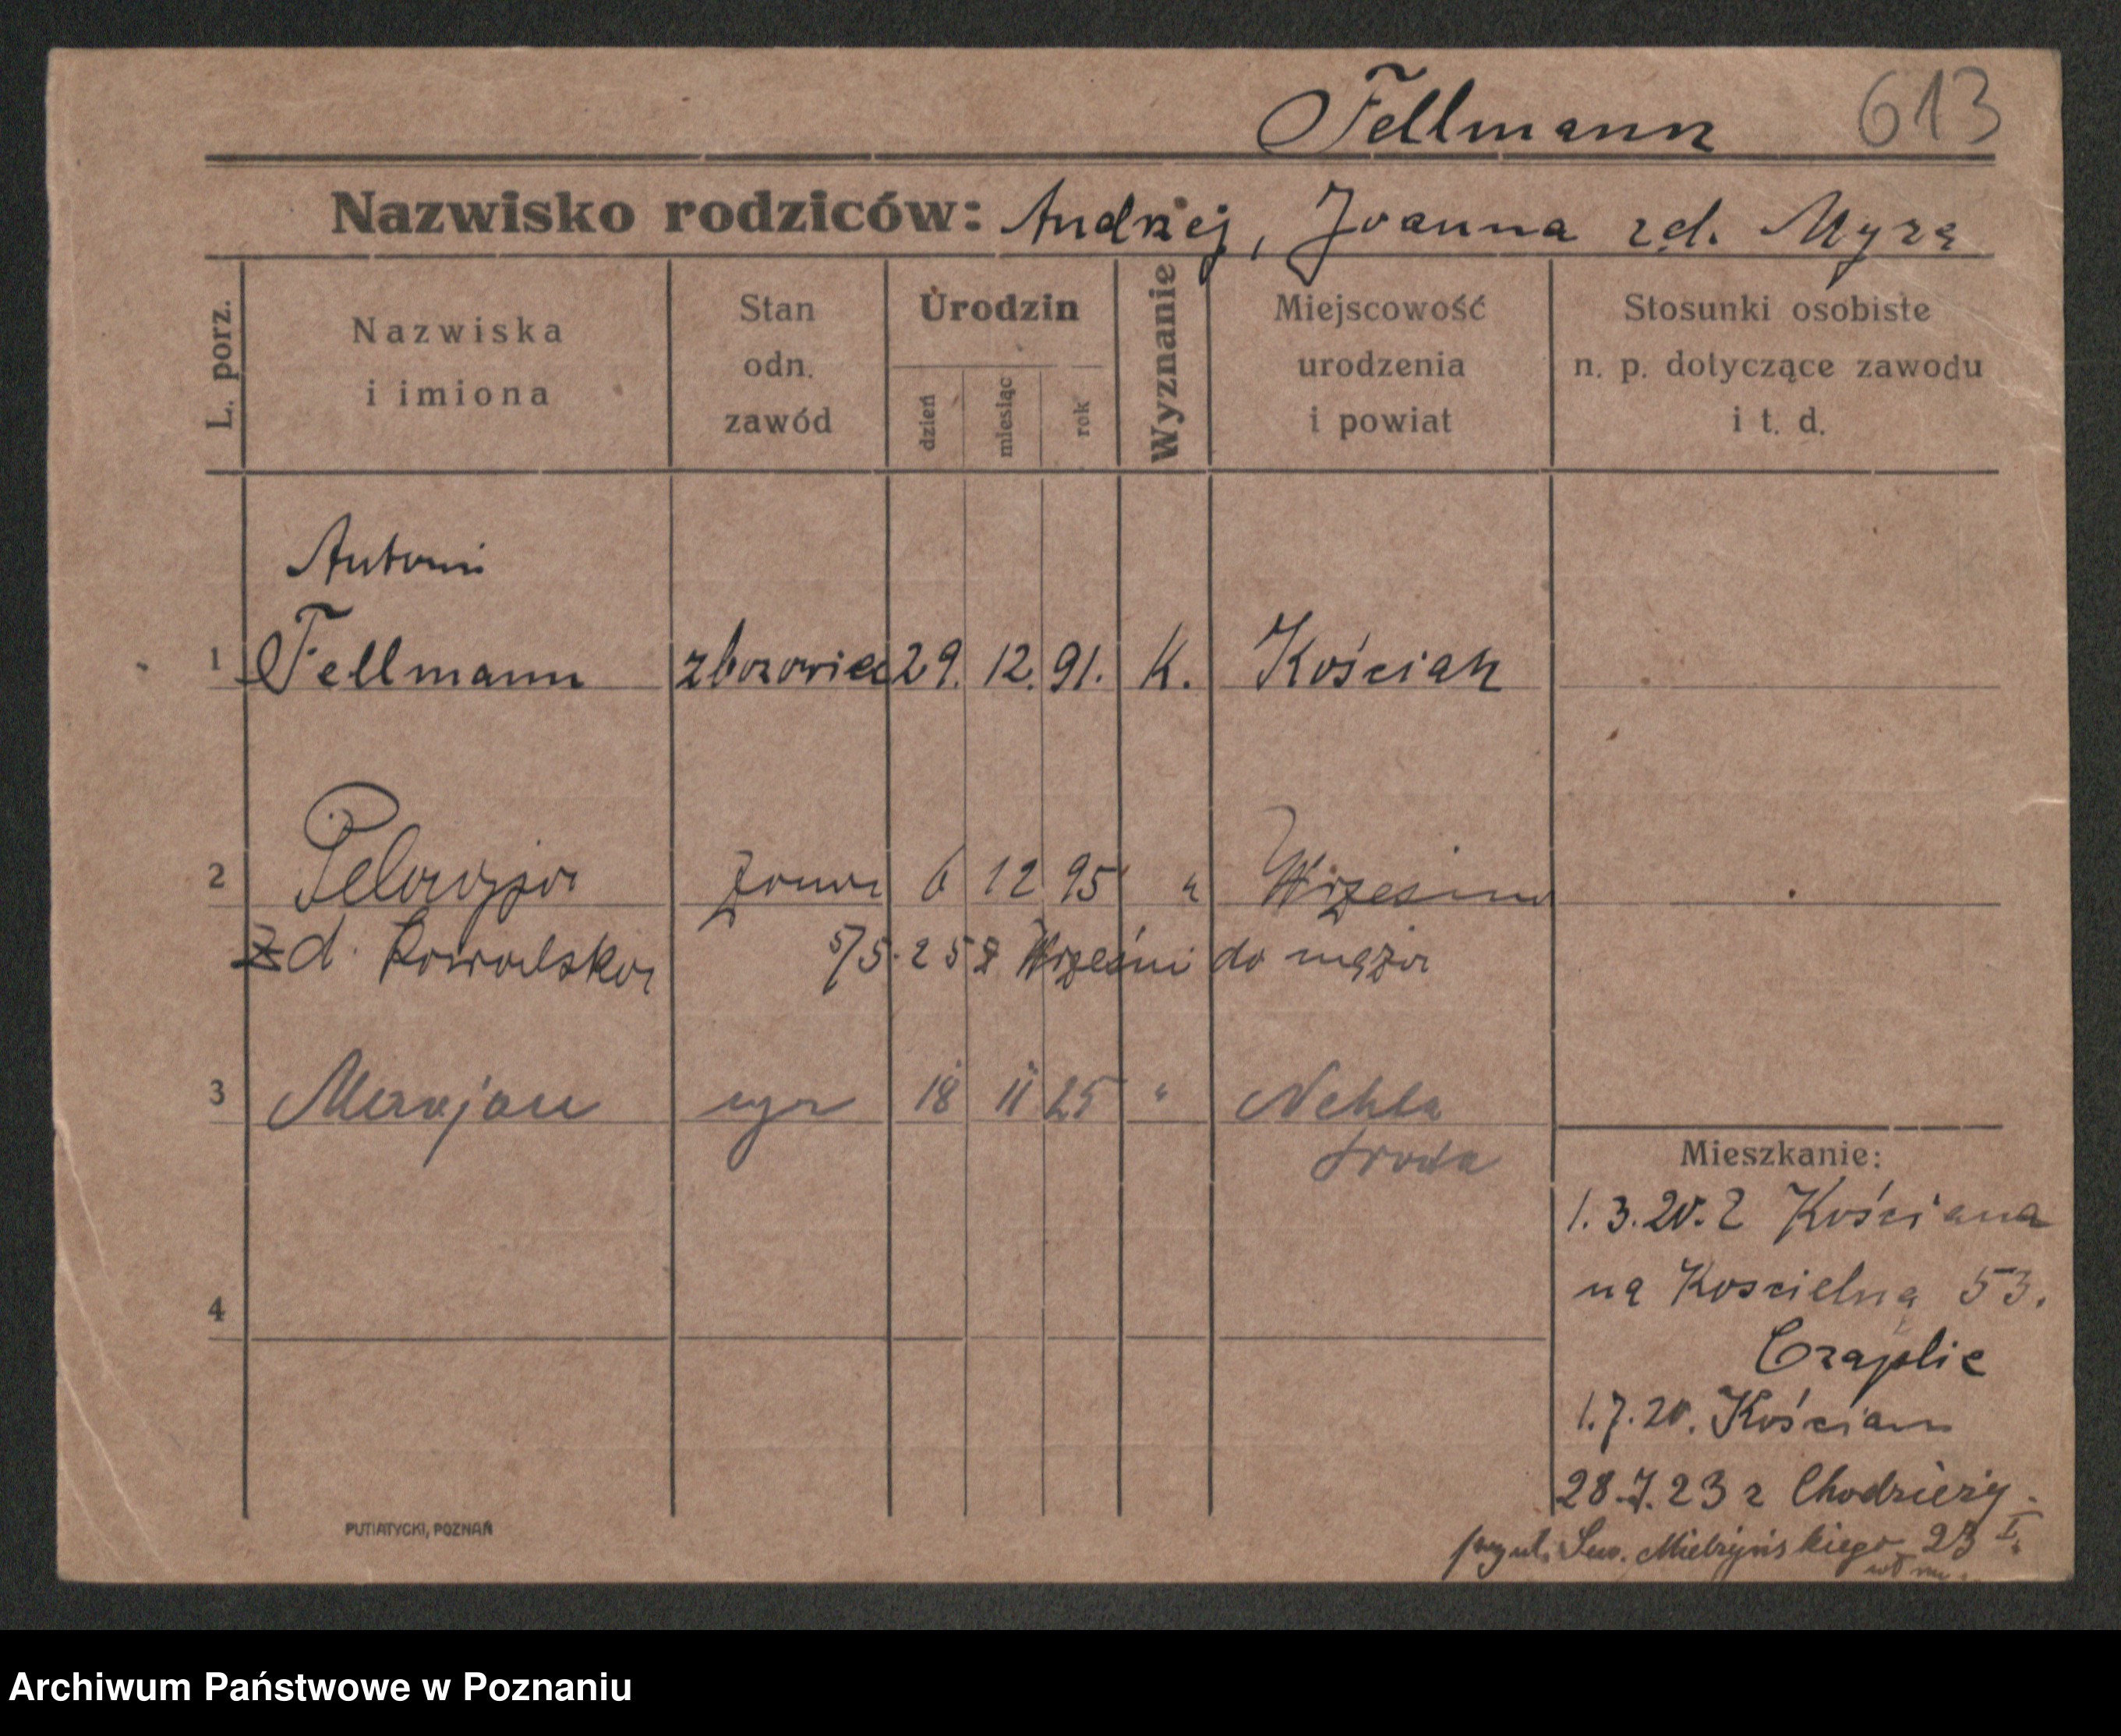 Fellmann 613
Nazwisko rodziców: Andrzej, Joanna zd. Myrz
L. porz.
Nazwiska
i imiona
Stan
odn.
zawód
Urodzin
dzień
miesiąc
rok
Wyznanie
Miejscowość
urodzenia
i powiat
Stosunki osobiste
n. p. dotyczące zawodu
i t. d.
Antoni
1 Fellmann zbożowiec 29. 12. 91. K. Kościan
2 Pelagja żona 6 12 95 " Września
Zd. Kowalska 5/5.25 z Wrześni do męża
3 Marjan syn 18 11 25 " Nekla
Środa
4
Mieszkanie:
1.3.20. z Kościana
na Kościelną 53.
Czaplic
1.7.20. Kościan
28.7.23 z Chodzieży.
przy ul. Sew. Mielżyńskiego 23 I.
PUTIATYCKI, POZNAŃ
Archiwum Państwowe w Poznaniu